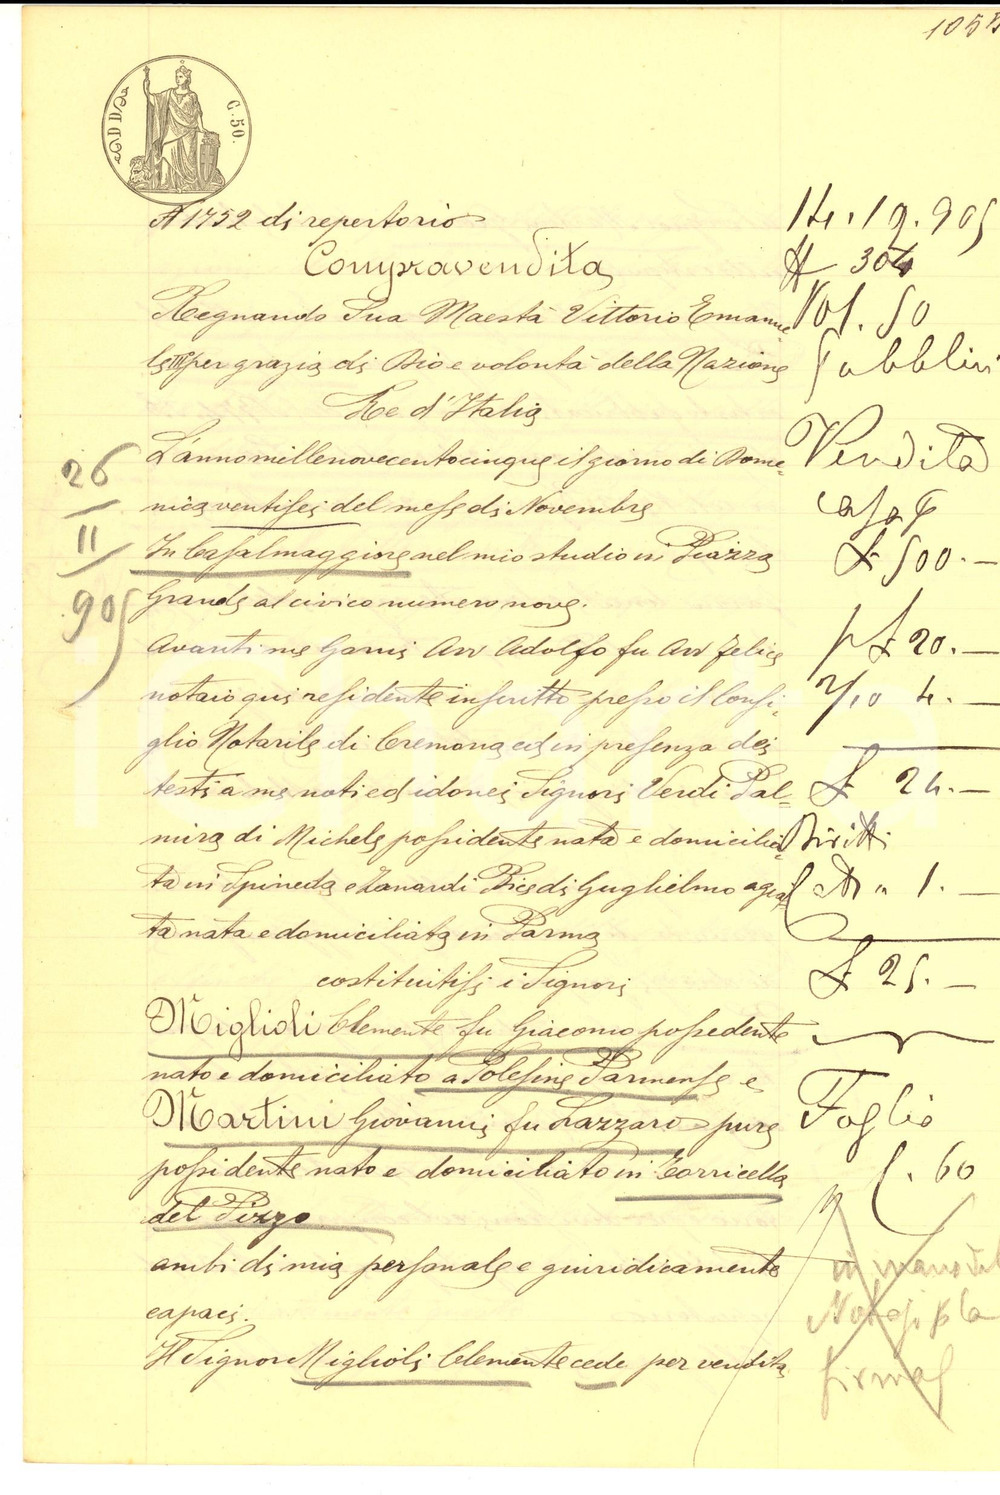 105
C. 50.
N 1752 di repertorio
Compravendita
Regnando Sua Maestà Vittorio Emanue
le III per grazia di Dio e volontà della Nazione
Re d'Italia
L'anno millenovecentocinque il giorno di Dome=
nica ventisei del mese di Novembre
In Casalmaggiore nel mio studio in Piazza
Grande al civico numero nove.
Avanti me Avv Adolfo fu Avv Felice
notaio qui residente inscritto presso il Consi=
glio Notarile di Cremona ed in presenza dei
testi a me noti ed idonei Signori Verdi Pal=
mira di Michele possidente nata e domicilia=
ta in Spineda e Zanardi Bice di Guglielmo agia
ta nata e domiciliata in Parma
costituitisi i Signori
Miglioli Clemente fu Giacomo possedente
nato e domiciliato a Polesine Parmense e
Martini Giovanni fu Lazzaro pure
possidente nato e domiciliato in Torricella
del Pizzo
ambi di mia personale e giuridicamente
capaci.
Il Signor Miglioli Clemente cede per vendita
26
11
905
304
Vol. 50
Vendita
casa
£ 500.-
£ 20.-
2/10 4.-
£ 24.-
Diritti
1.-
£ 25.-
Foglio
60
in mano del
Notaio